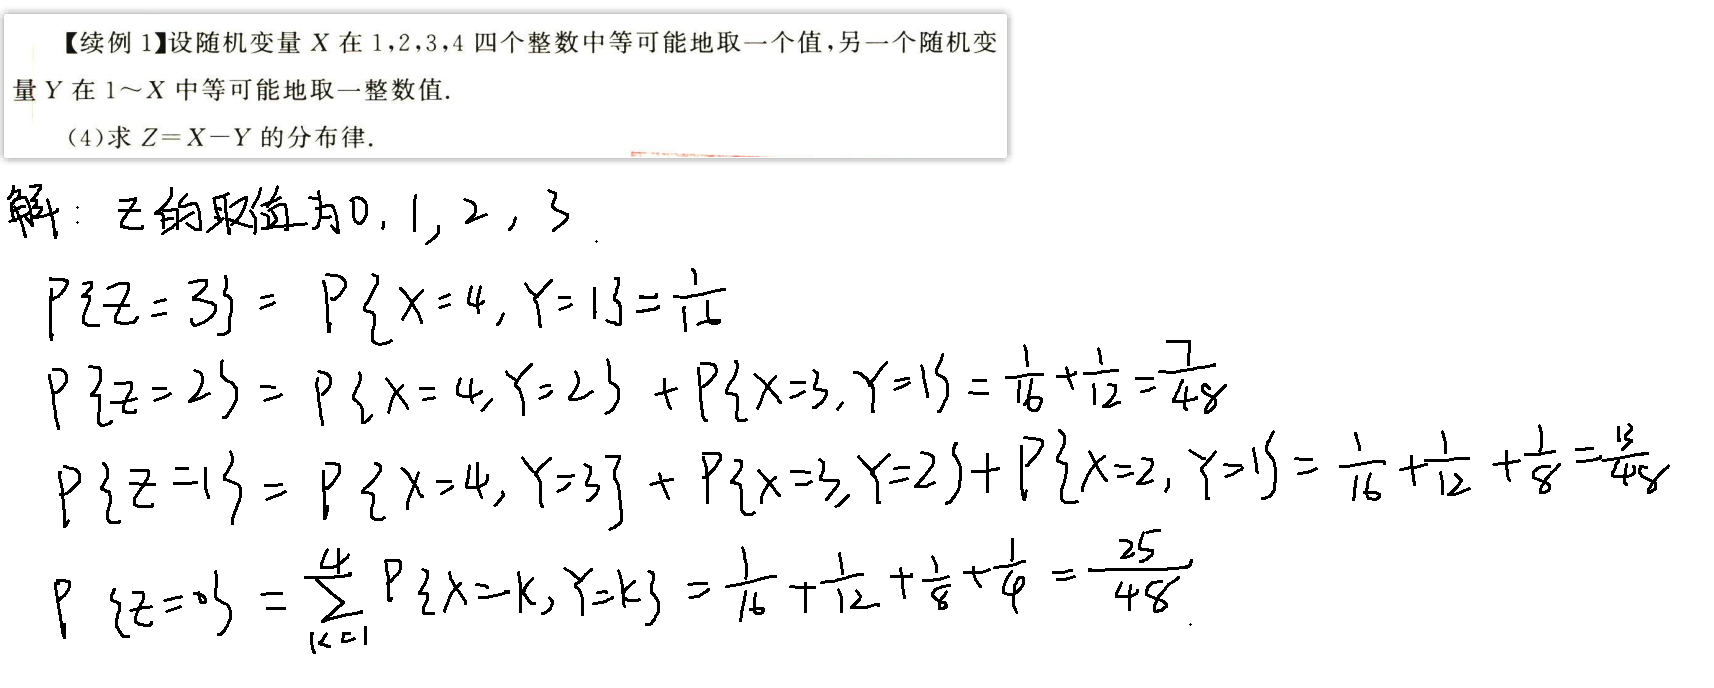 【续例 1】设随机变量 X 在 1,2,3,4 四个整数中等可能地取一个值,另一个随机变
量 Y 在 1～X 中等可能地取一整数值.
(4)求 Z=X-Y 的分布律.
解: Z的取值为0, 1, 2, 3.
P{Z=3} = P{X=4, Y=1} = 1/16
P{Z=2} = P{X=4, Y=2} + P{X=3, Y=1} = 1/16 + 1/12 = 7/48
P{Z=1} = P{X=4, Y=3} + P{X=3, Y=2} + P{X=2, Y=1} = 1/16 + 1/12 + 1/8 = 13/48
P{Z=0} = ∑_{k=1}^{4} P{X=k, Y=k} = 1/16 + 1/12 + 1/8 + 1/4 = 25/48.